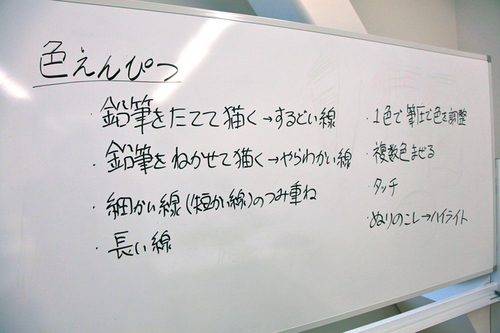 色えんぴつ
・鉛筆をたてて猫く→するどい線
・鉛筆をねかせて猫く→やらわかい線
・細かい線(短かい線)のつみ重ね
・長い線
・1色で筆圧で色を調整
・複数色まぜる
・タッチ
・ぬりのこし→ハイライト